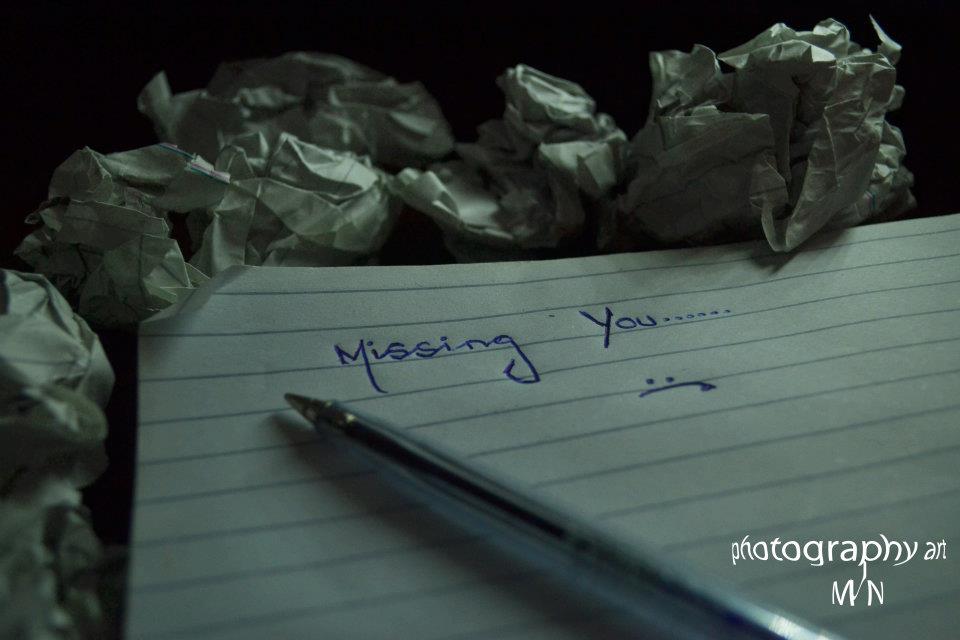 Missing You.......
photography art
MN